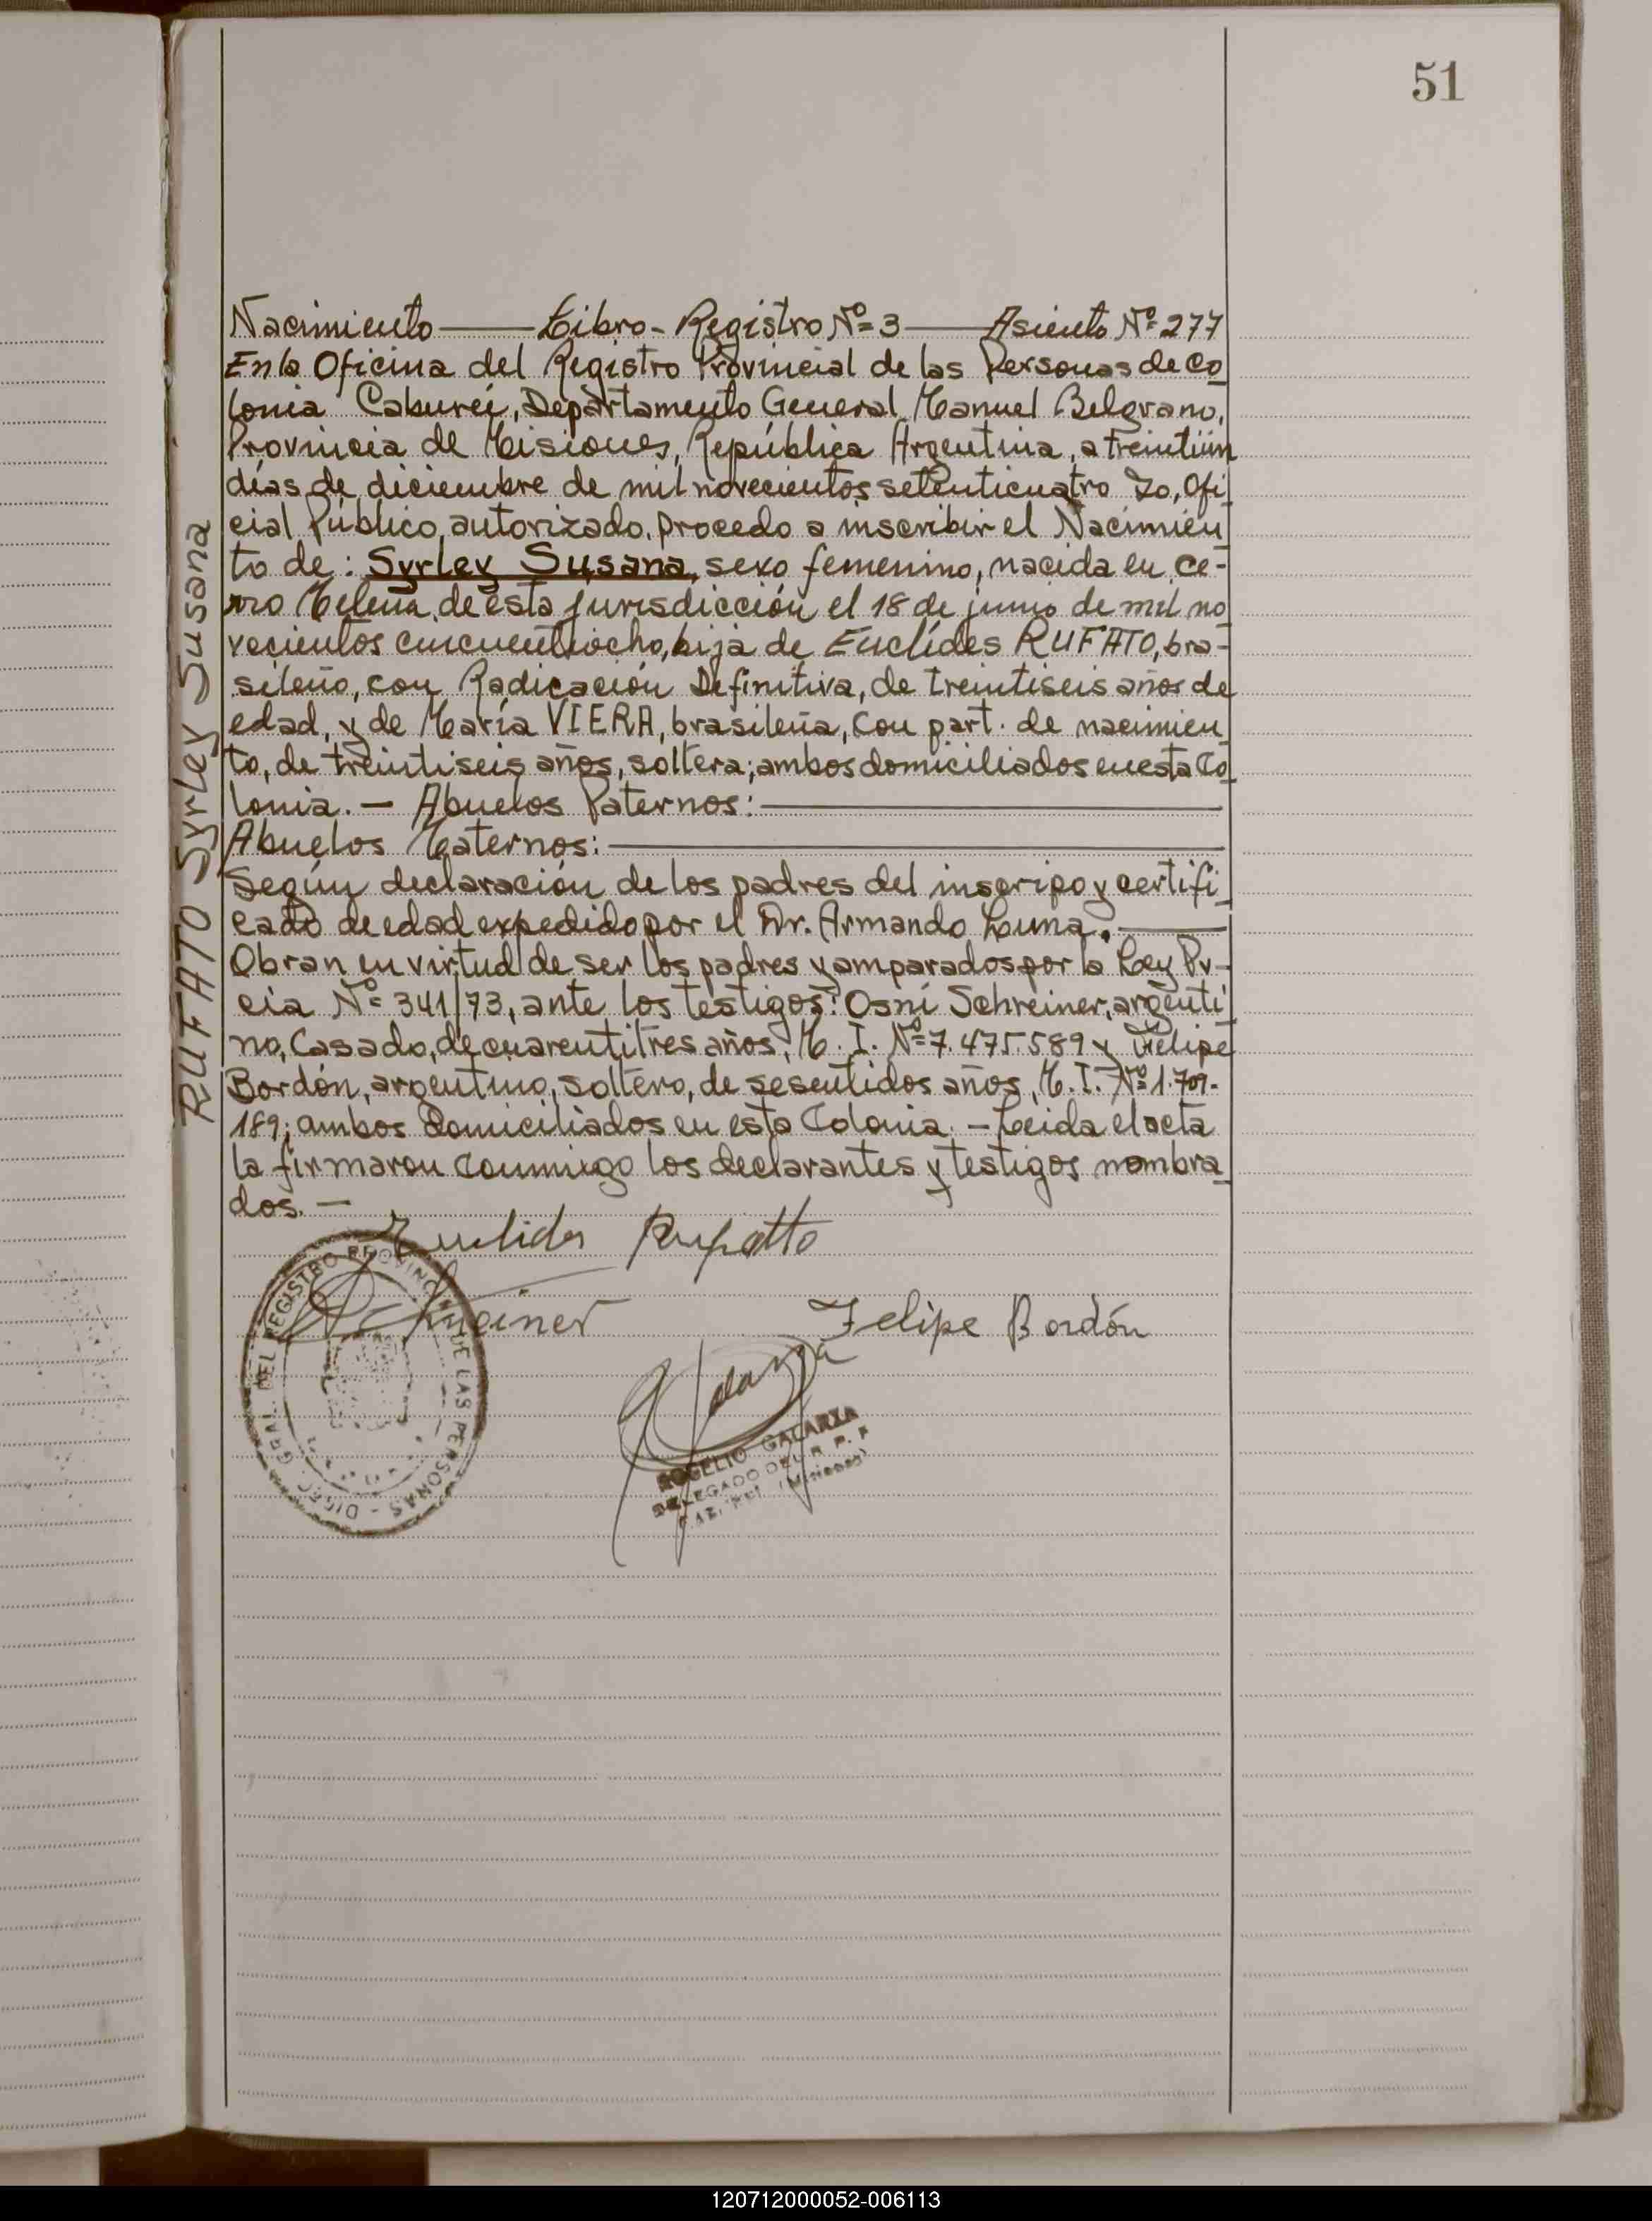 51
Nacimiento — Libro - Registro Nº = 3 — Asiento Nº = 277
En la Oficina del Registro Provincial de las Personas de Co
lonia Caburei, Departamento General Manuel Belgrano,
Provincia de Misiones, República Argentina, a treintiún
días de diciembre de mil novecientos setenticuatro Yo, Ofi
cial Público autorizado. procedo a inscribir el Nacimien
to de: Syrley Susana, sexo femenino, nacida en ce-
rro Melena de esta jurisdicción el 18 de junio de mil no
vecientos cincuentiocho, hija de Euclídes RUFATO, bra-
sileño, con Radicación Definitiva, de treintiseis años de
edad, y de María VIERA, brasileña, con part. de nacimien
to, de treintiseis años, soltera; ambos domiciliados en esta Co
lonia. — Abuelos Paternos: —
Abuelos Maternos: —
Según declaración de los padres del inscripo y certifi
cado de edad expedido por el Dr. Armando Luna. —
Obran en virtud de ser los padres y amparados por la Ley Pv-
cia Nº = 341/73, ante los testigos: Osni Schreiner, argenti
no, Casado, de cuarentitres años, M. I. Nº = 7.475.589 y Felipe
Bordón, argentino, soltero, de sesentidos años, M. I. Nº 1.709.
189; ambos domiciliados en esta Colonia. — Leida el acta
la firmaron conmigo los declarantes y testigos nombra
dos. —
RUFATO Syrley Susana
Euclides Rufatto
Schreiner
Felipe Bordón
Galarza
DIREC. GRAL. DEL REGISTRO PROVINCIAL DE LAS PERSONAS -
ROGELIO GALARZA
DELEGADO DEL R. P. P.
(Misiones)
120712000052-006113